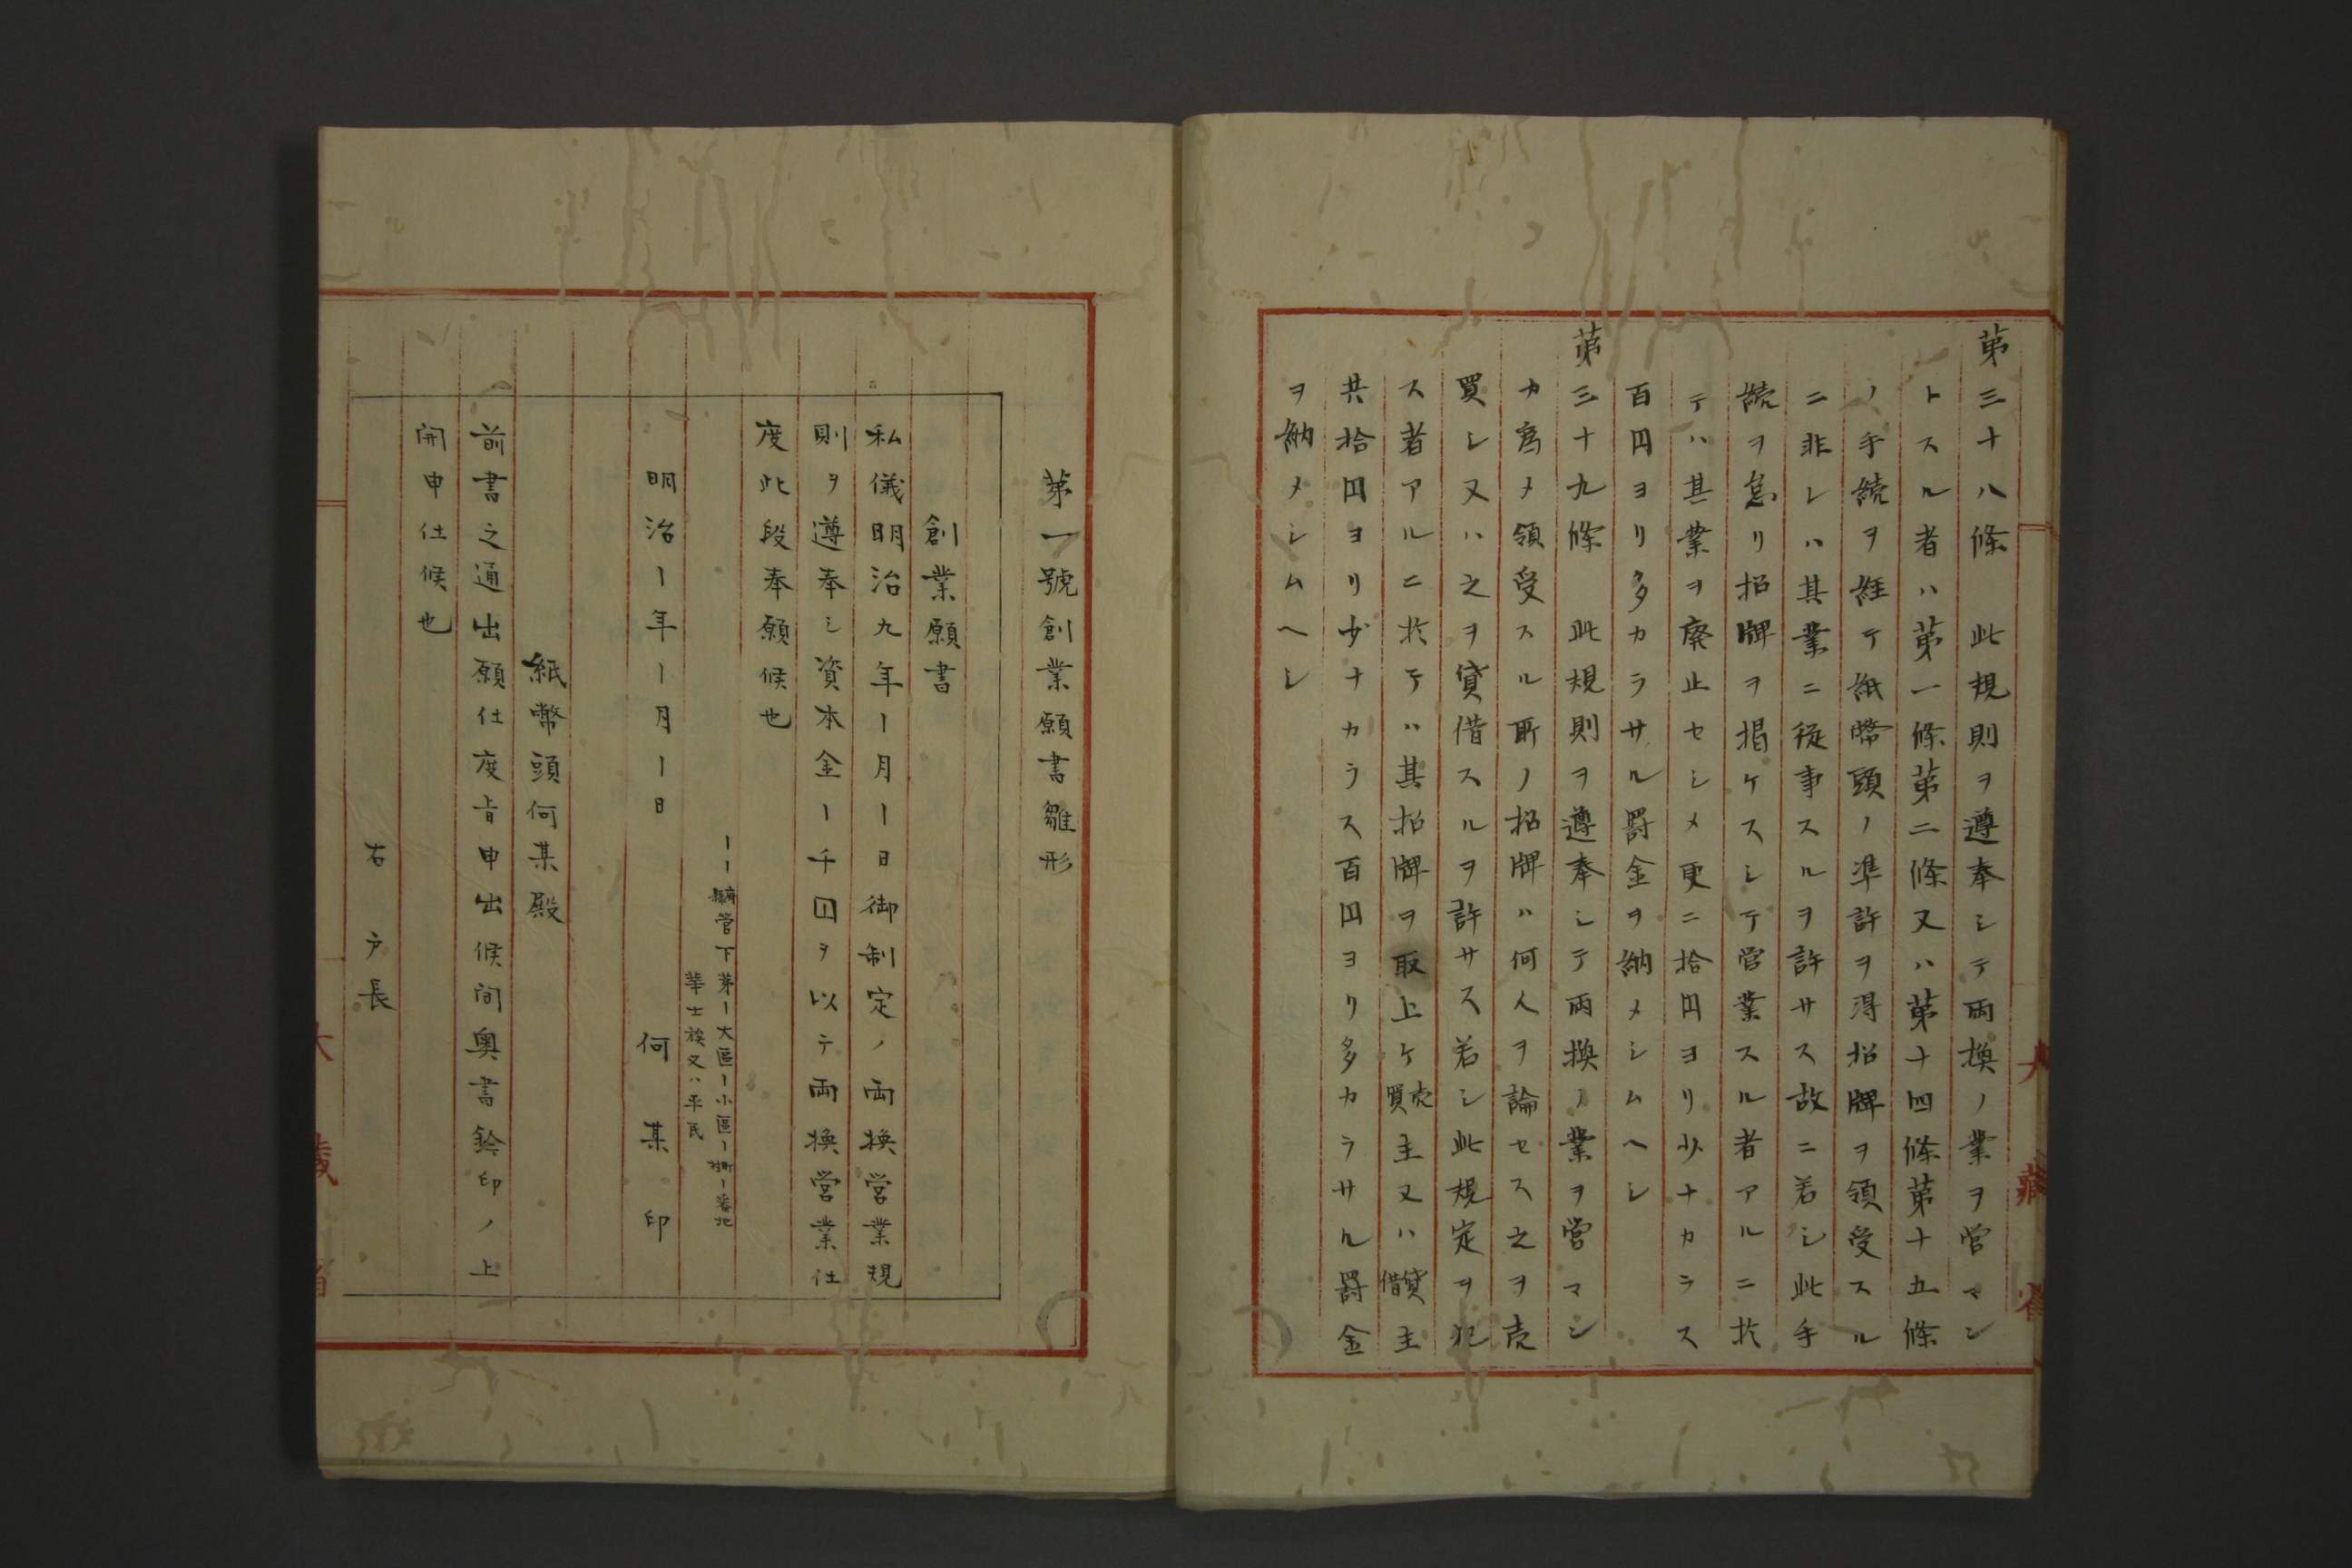 第三十八條　此規則ヲ遵奉シテ両換ノ業ヲ営マン
トスル者ハ第一條第二條又ハ第十四條第十五條
ノ手続ヲ経テ紙幣頭ノ準許ヲ得招牌ヲ領受スル
ニ非レハ其業ニ従事スルヲ許サス故ニ若シ此手
続ヲ怠リ招牌ヲ掲ケスシテ営業スル者アルニ於
テハ其業ヲ廃止セシメ更ニ拾円ヨリ少ナカラス
百円ヨリ多カラサル罸金ヲ納メシムヘシ
第三十九條　此規則ヲ遵奉シテ両換ノ業ヲ営マン
カ為メ領受スル所ノ招牌ハ何人ヲ論セス之ヲ売
買シ又ハ之ヲ貸借スルヲ許サス若シ此規定ヲ犯
ス者アルニ於テハ其招牌ヲ取上ケ売買主又ハ貸借主
共拾円ヨリ少ナカラス百円ヨリ多カラサル罸金
ヲ納メシムヘシ
大藏省
第一號創業願書雛形
創業願書
私儀明治九年ー月ー日御制定ノ両換営業規
則ヲ遵奉シ資本金ー千円ヲ以テ両換営業仕
度此段奉願候也
ーー府縣管下第ー大區ー小區ー町村ー番地
華士族又ハ平民
明治ー年ー月ー日　何某印
紙幣頭何某殿
前書之通出願仕度旨申出候間奥書鈐印ノ上
開申仕候也
右戸長
大藏省